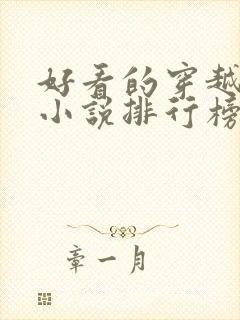 好看的穿越
小说排行榜
章一月